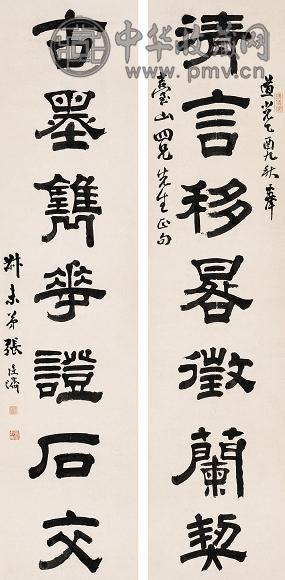 中华收藏网
www.pmv.cn
道光乙酉九秋奉
清言移晷徵蘭契
臺山四兄先生正句
古墨儁華證石交
叔未弟張廷濟